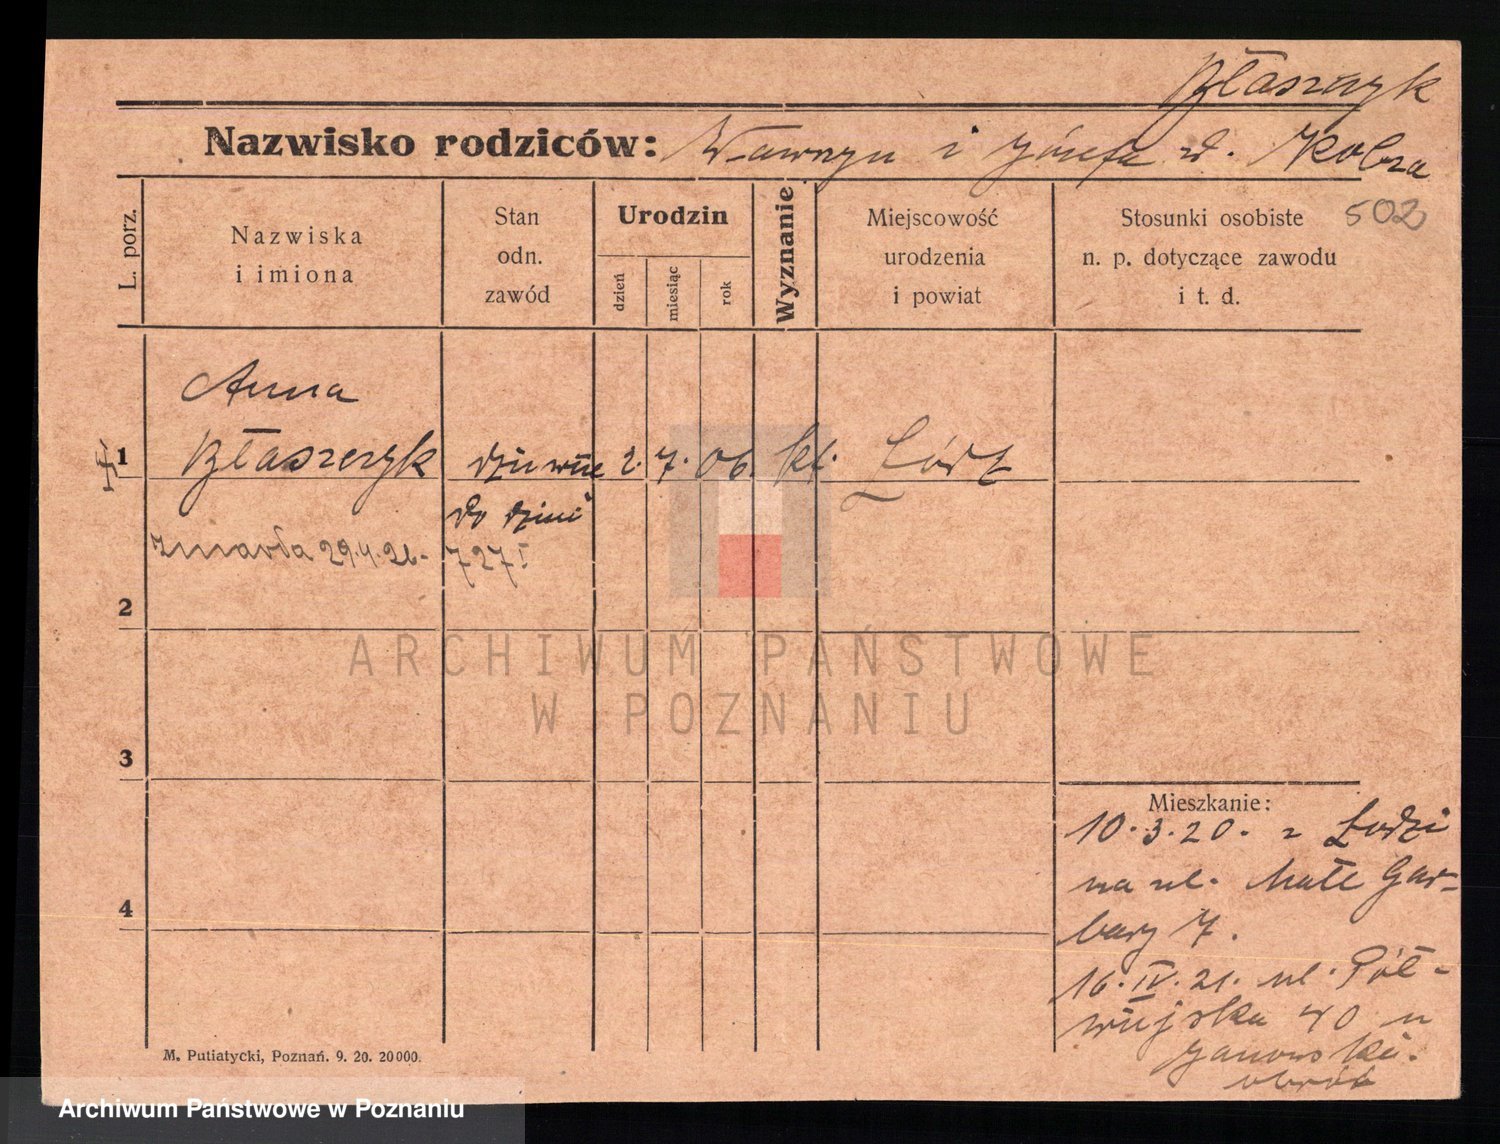 Błaszczyk
Nazwisko rodziców: Wawrzyn i Józefa zd. Kobza
502
L. porz.
Nazwiska
i imiona
Stan
odn.
zawód
Urodzin
dzień
miesiąc
rok
Wyznanie
Miejscowość
urodzenia
i powiat
Stosunki osobiste
n. p. dotyczące zawodu
i t. d.
Anna
1 Błaszczyk 2. 7. 06. kt. Łódź
zmarła 29.4.21. 727
2
ARCHIWUM PAŃSTWOWE
W POZNANIU
3
4
Mieszkanie:
10.3.20. z Łodzi
na ul. Małe Gar-
bary 7.
16.IV.21. ul. Pół-
wiejska 40 u
Janowski.
M. Putiatycki, Poznań. 9. 20. 20000.
Archiwum Państwowe w Poznaniu